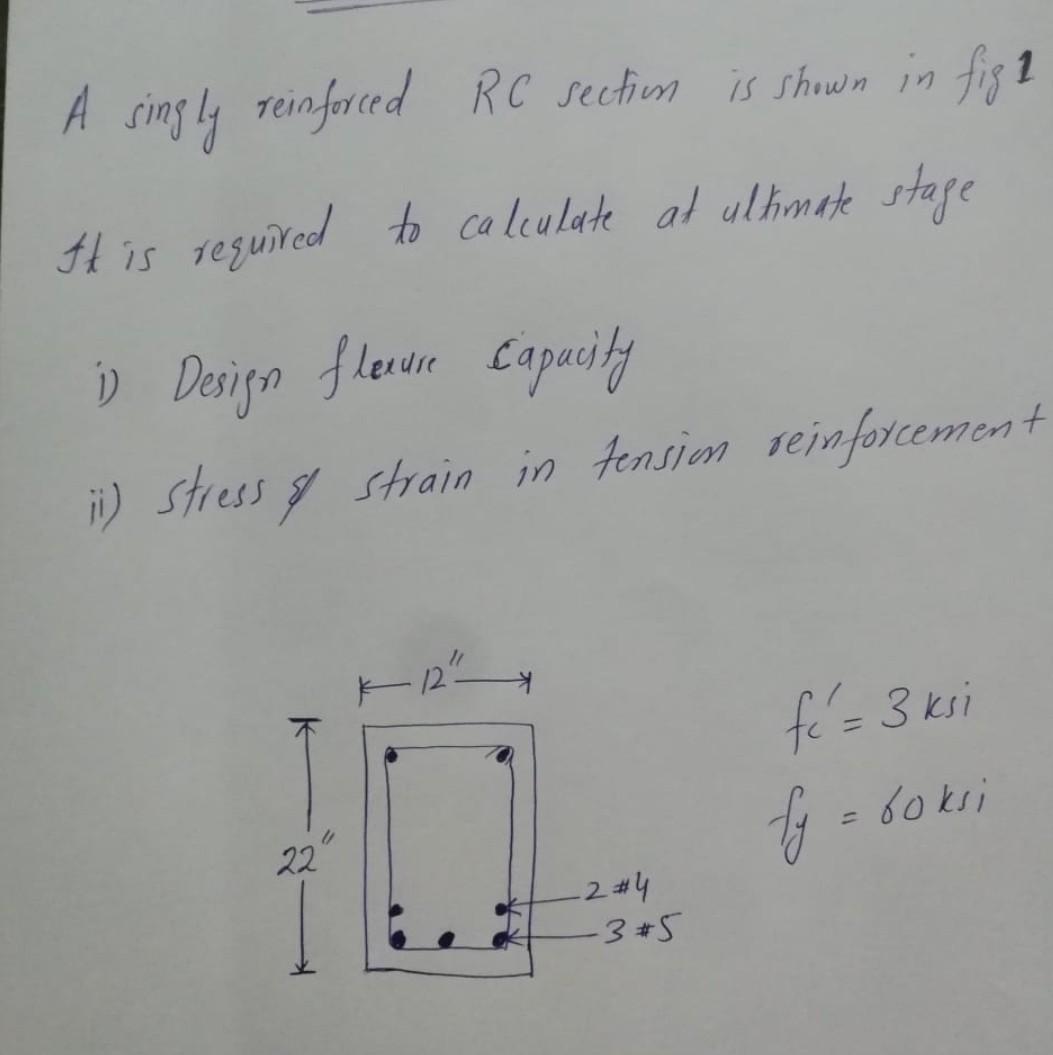 A singly reinforced RC section is shown in fig 1
It is required to calculate at ultimate stage
i) Design flexure Capacity
ii) stress & strain in tension reinforcement
12"
22"
2 #4
3 #5
fc' = 3 ksi
fy = 60 ksi